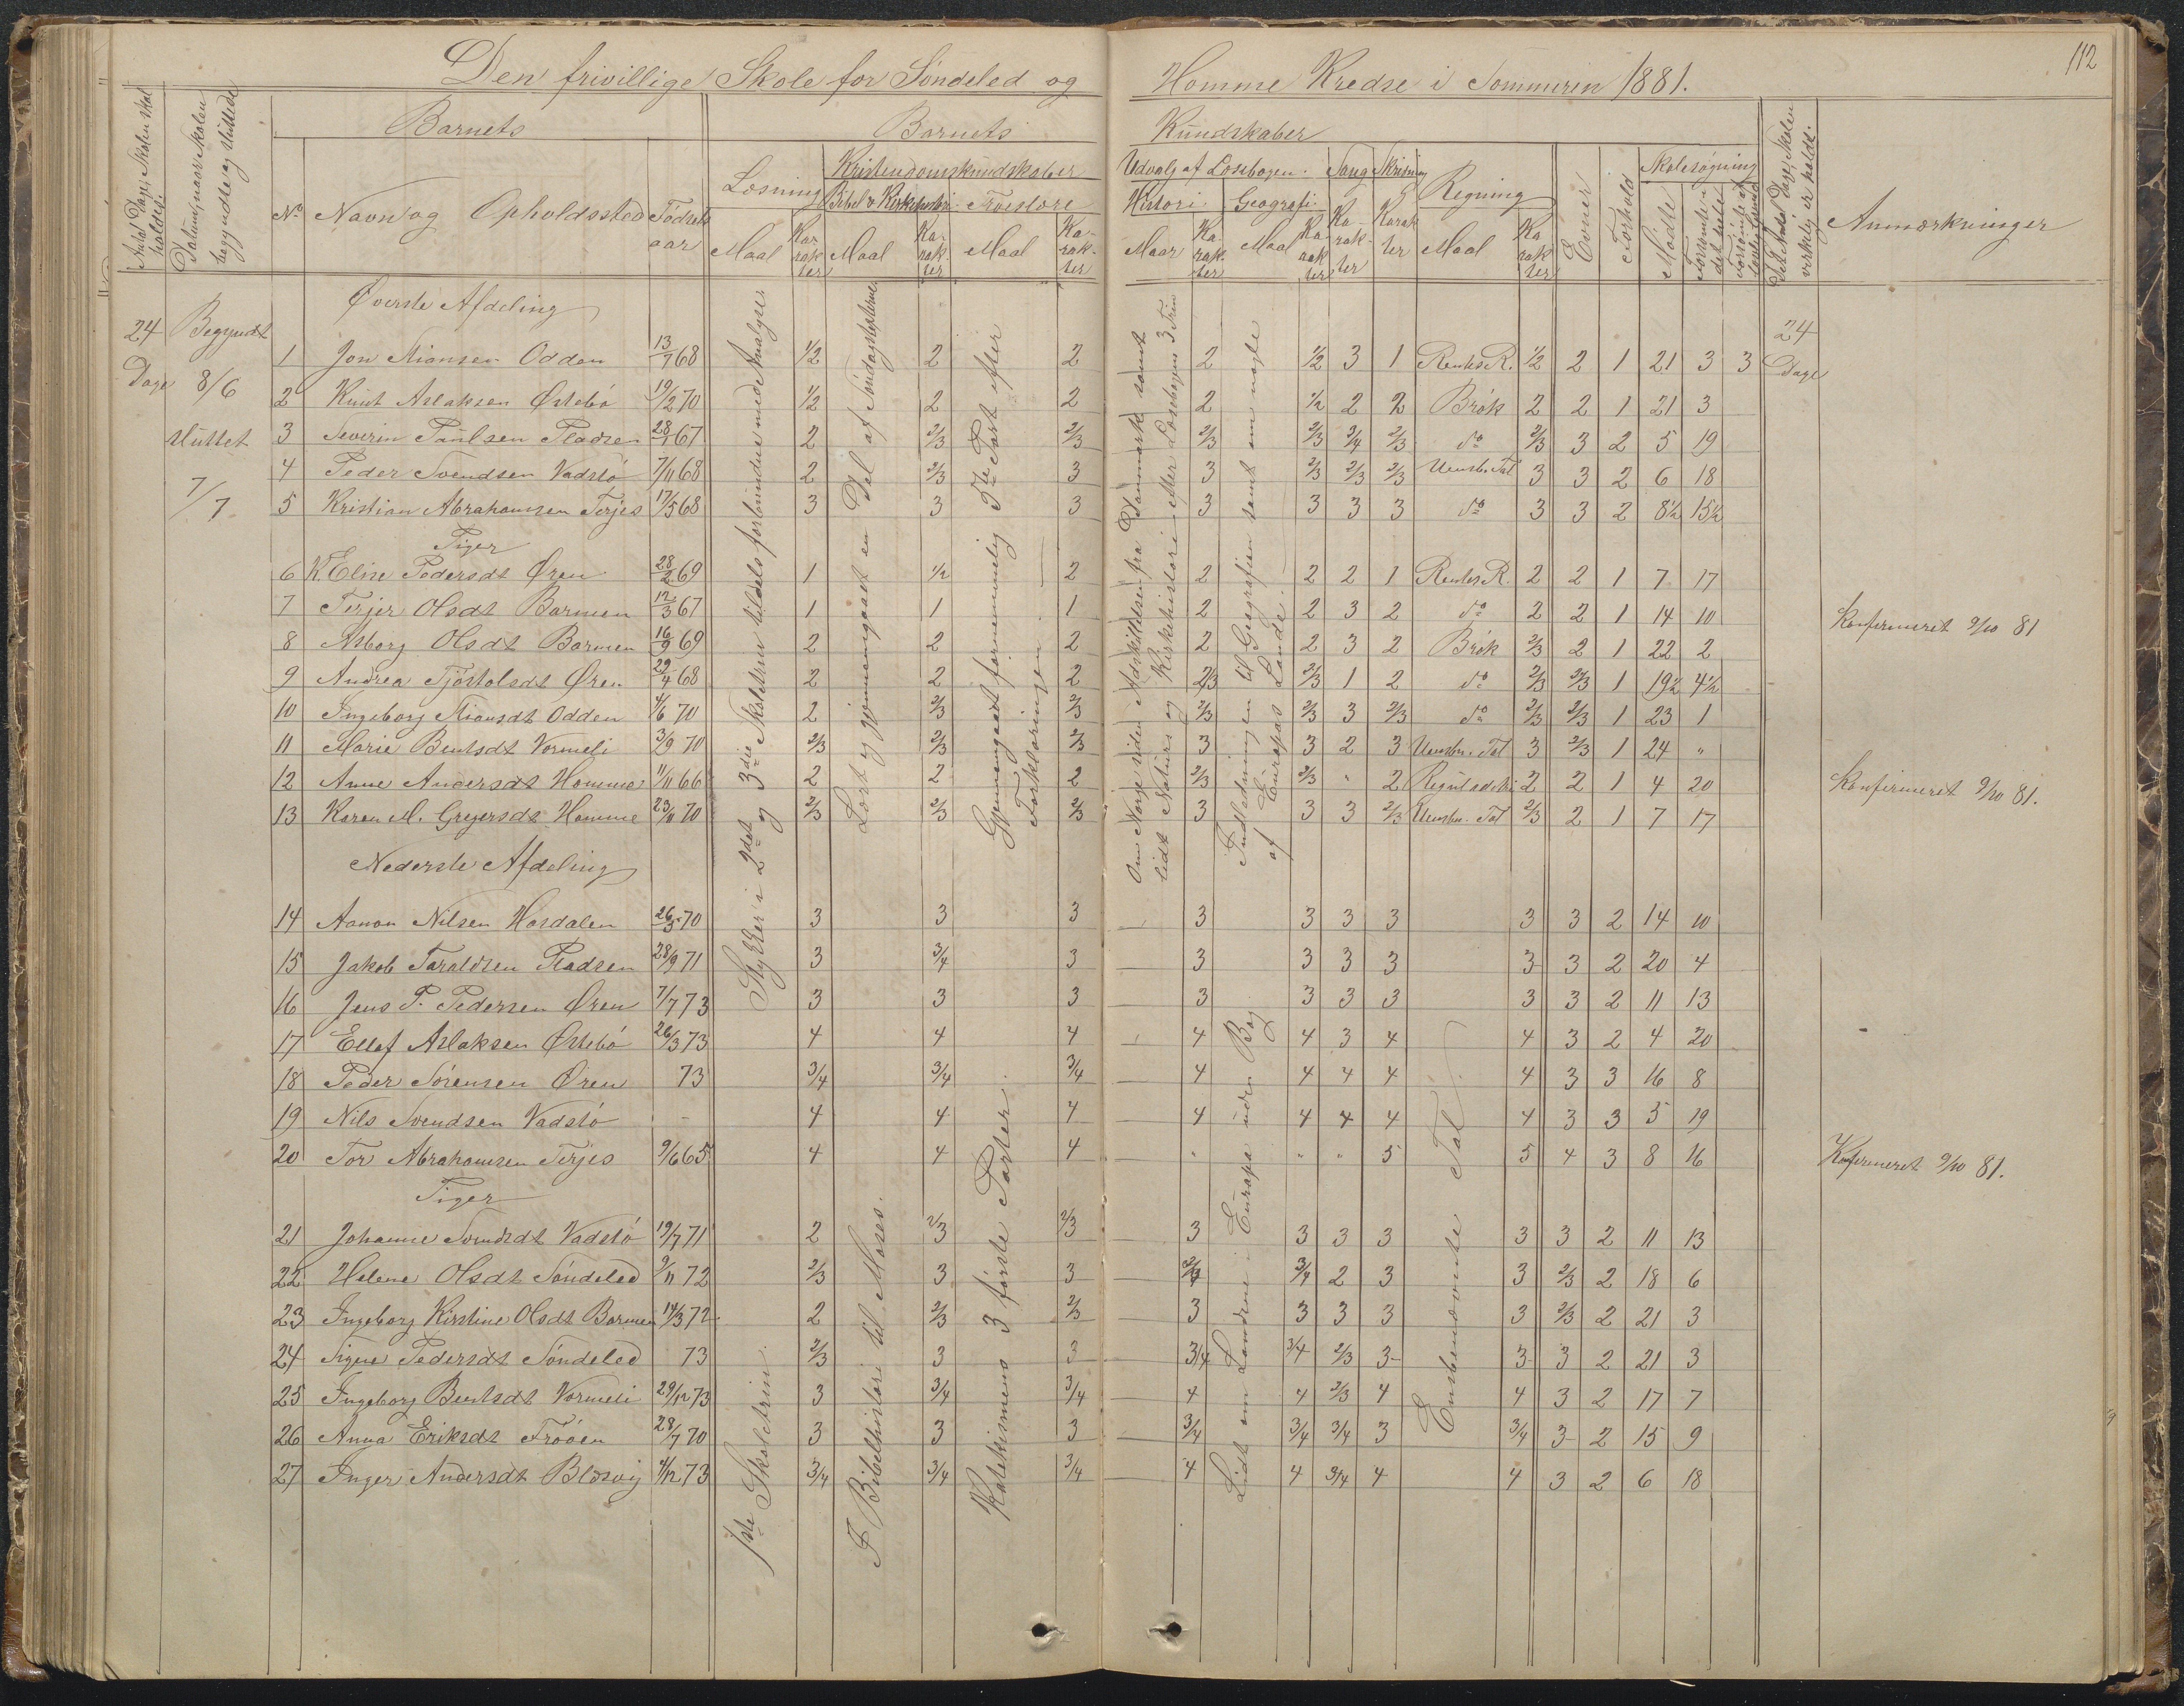 112
Den frivillige Skole for Söndeled og Homme Kredse i Sommeren 1881.
Antal Dage, Skolen skal holdes.
Datum, naar Skolen begyndte og sluttede
Barnets
Barnets Kundskaber
No Navn og Opholdssted Födsels aar
Læsning
Maal Karakter
Kristendomskundskaber
Bibel & Kirkehistori. Troeslære
Maal Karakter Maal Karakter
Udvalg af Læsebogen.
Histori. Geografi.
Maal Karakter Maal Karakter
Sang Karakter
Skrivning Karakter
Regning
Maal Karakter
Evner
Forhold
Skolesøgning
Mødte
Forsømte i det hele
Forsømte af lovlig Grund
Det Antal Dage, Skolen virkelig er holdt.
Anmærkninger
24 Dage
Begyndt 8/6 sluttet 7/7
24 Dage
Øverste Afdeling
1 Jon Mionsen Odden 13/7 68 1/2 2 2 2 1/2 3 1 Rentes R. 1/2 2 1 21 3 3
2 Knut Aslaksen Østebö 19/2 70 1/2 2 2 2 1/2 2 2 Brök 2 2 1 21 3
3 Severin Paulsen Pladsen 28/1 67 2 2/3 2/3 2/3 2/3 3/4 2/3 do 2/3 3 2 5 19
4 Peder Svendsen Vadstö 7/11 68 2 2/3 3 3 2/3 2/3 2/3 Uensb. Tal 3 3 2 6 18
5 Kristian Abrahamsen Terjes 17/5 68 3 3 3 3 3 3 3 do 3 3 2 8 1/2 15 1/2
Piger
6 K Elise Pedersdt Øren 28/2 69 1 1/2 2 2 2 2 1 Rentes R. 2 2 1 7 17
7 Terjer Olsdt Barmen 12/3 67 1 1 1 2 2 3 2 do 2 2 1 14 10 Konfirmeret 9/10 81
8 Asborg Olsdt Barmen 16/9 69 2 2 2 2 2 3 2 Brök 2/3 2 1 22 2
9 Andrea Tjöstolsdt Øren 29/4 68 2 2 2 2/3 2/3 1 2 do 2/3 2/3 1 19 1/2 4 1/2
10 Ingeborg Mionsdt Odden 4/6 70 2 2/3 2/3 2/3 2/3 3 2/3 do 2/3 2/3 1 23 1
11 Marie Bentsdt Vormeli 3/9 70 2/3 2/3 2/3 3 3 2 3 Uensbn. Tal 3 2/3 1 24 "
12 Anne Andersdt Homme 11/11 66 2 2 2 2/3 2/3 " 2 2 2 1 4 20 Konfirmeret 9/10 81.
13 Karen M. Gregersdt Homme 23/11 70 2/3 2/3 2/3 3 3 3 2/3 Uensbn. Tal 2/3 2 1 7 17
Stykker i 2det og 3die Skoletrin tildels forbundne med Analyse.
Lært og gjennemgaaet en Del af Søndagsteksterne.
Gjennemgaaet fornemmelig 3die Part efter Forklaringen.
Om Norge siden Adskillelsen fra Danmark samt lidt Naturs og Kirkehistori efter Læsebogens 3 Trin
Indledningen til Geografien samt om nogle af Europas Lande.
Nederste Afdeling
14 Aanon Nilsen Hasdalen 26/5 70 3 3 3 3 3 3 3 3 3 2 14 10
15 Jakob Taraldsen Pladsen 28/9 71 3 3/4 3 3 3 3 3 3 3 2 20 4
16 Jens P. Pedersen Øren 7/7 73 3 3 3 3 3 3 3 3 3 2 11 13
17 Ellef Aslaksen Østebö 26/3 73 4 4 4 4 4 3 4 4 3 2 4 20
18 Peder Sörensen Øren 73 3/4 3/4 3/4 4 4 4 4 4 3 3 16 8
19 Nils Svendsen Vadstö - 4 4 4 4 4 4 4 4 3 3 5 19
20 Tor Abrahamsen Terjes 9/6 65 4 4 4 " " " 5 5 4 3 8 16 Konfirmeret 9/10 81.
Piger
21 Johanne Svendsdt Vadstö 19/7 71 2 2/3 2/3 3 3 3 3 3 3 2 11 13
22 Helene Olsdt Söndeled 9/11 72 2/3 3 3 3/4 3/4 2 3 3 2/3 2 18 6
23 Ingeborg Kirstine Olsdt Barmen 14/3 72 2 2/3 2/3 3 3 3 3 3 2/3 2 21 3
24 Signe Pedersdt Söndeled 73 2/3 3 3 3/4 3/4 2/3 3 3 3 2 21 3
25 Ingeborg Bentsdt Vormeli 29/12 73 3 3/4 3/4 4 4 2/3 4 4 3 2 17 7
26 Anna Eriksdt Fröóen 28/7 70 3 3 3 3/4 3/4 3/4 3 3/4 3 2 15 9
27 Inger Andersdt Blæsvig 4/12 73 3/4 3/4 3/4 4 4 3/4 4 4 3 2 6 18
1ste Skoletrin.
I Bibelhistorie til Moses.
Katekismens 3 förste Parter.
Lidt om Landene i Europa uden Bog
Ensbenævnte Tal.